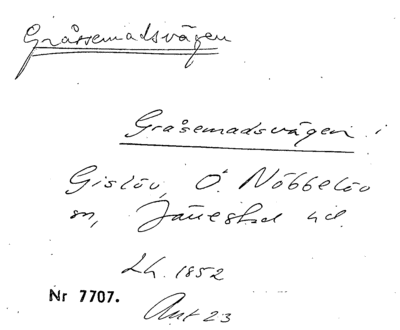 Gråssemadsvägen
Gråsemadsvägen i
Gislöv, Ö. Nöbbelöv
sn, Järrestad hd.
Lh. 1852
Nr 7707.
Ant 23